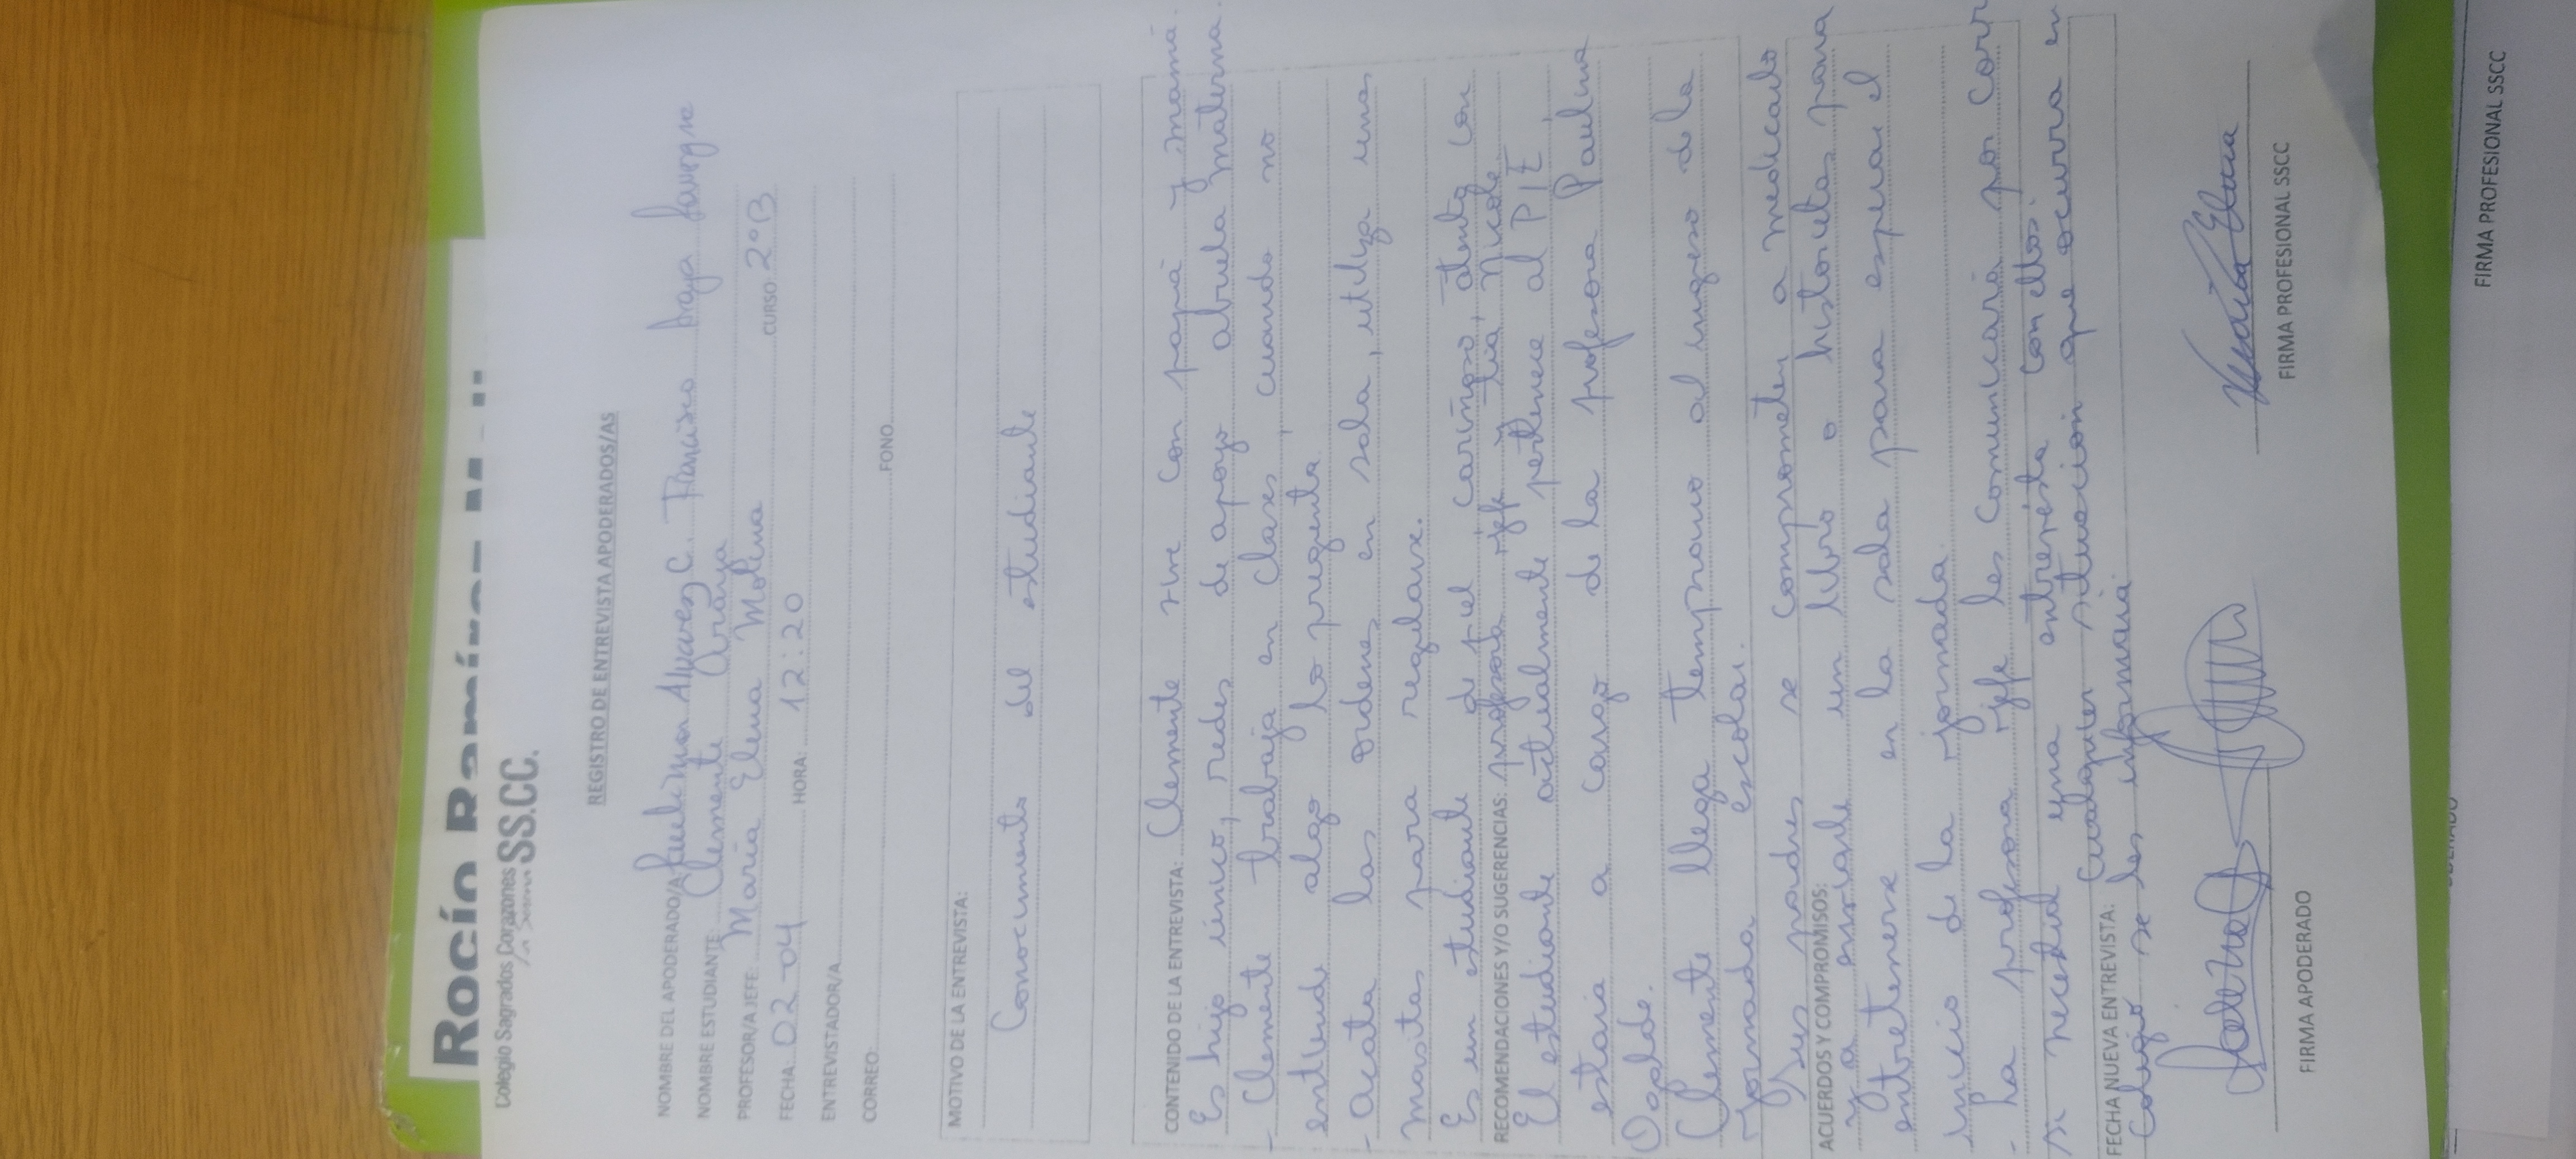 Rocío Ramírez M
Colegio Sagrados Corazones SS.CC.
REGISTRO DE ENTREVISTA APODERADOS/AS
NOMBRE DEL APODERADO/A Paulina Alvarez C. Francisco Araya
NOMBRE ESTUDIANTE: Clemente Araya
PROFESOR/A JEFE: María Elena Molina CURSO 2°B
FECHA: 02-04 HORA: 12:20
ENTREVISTADOR/A
CORREO: FONO
MOTIVO DE LA ENTREVISTA:
Conocimiento del estudiante
CONTENIDO DE LA ENTREVISTA: Clemente vive con papá y mamá.
Es hijo único, redes de apoyo abuela materna.
- Clemente trabaja en clases, cuando no
entiende algo lo pregunta.
- Acata las ordenes en sala, utiliza unas
masitas para regularse.
Es un estudiante de piel cariñoso, atento con
profesora jefe y tía Nicole.
RECOMENDACIONES Y/O SUGERENCIAS:
El estudiante actualmente pertenece al PIE,
estaría a cargo de la profesora Paulina
Ogalde.
Clemente llega temprano al ingreso de la
jornada escolar.
Sus padres se comprometen a medicarlo
ACUERDOS Y COMPROMISOS:
y a enviarle un libro o historietas para
entretenerse en la sala para esperar el
inicio de la jornada.
- La profesora jefe les comunicará por corr
si necesitad una entrevista con ellos.
Cualquier situación que ocurra en
FECHA NUEVA ENTREVISTA:
Colegio se les informará
FIRMA APODERADO
FIRMA PROFESIONAL SSCC
FIRMA PROFESIONAL SSCC